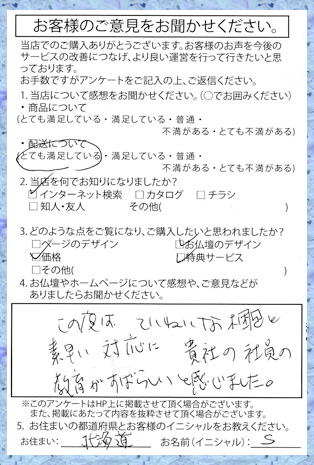 お客様のご意見をお聞かせください。
当店でのご購入ありがとうございます。お客様のお声を今後の
サービスの改善につなげ、より良い運営を行って行きたいと思
っております。
お手数ですがアンケートをご記入の上、ご返信ください。
1. 当店について感想をお聞かせください。(○でお囲みください)
・商品について
(とても満足している・満足している・普通・
不満がある・とても不満がある)
・配送について
(とても満足している・満足している・普通・
不満がある・とても不満がある)
2. 当店を何でお知りになりましたか?
□インターネット検索 □カタログ □チラシ
□知人・友人 その他( )
3. どのような点をご覧になり、ご購入したいと思われましたか?
□ページのデザイン □お仏壇のデザイン
□価格 □特典サービス
□その他( )
4. お仏壇やホームページについて感想や、ご意見などが
ありましたらお聞かせください。
この度は ていねいな梱包と
素早い 対応に 貴社の社員の
教育がすばらしいと感じました。
※このアンケートはHP上に掲載させて頂く場合がございます。
また、掲載にあたって内容を抜粋させて頂く場合がございます。
5. お住まいの都道府県とお客様のイニシャルをお教えください。
お住まい: 北海道 お名前(イニシャル): S